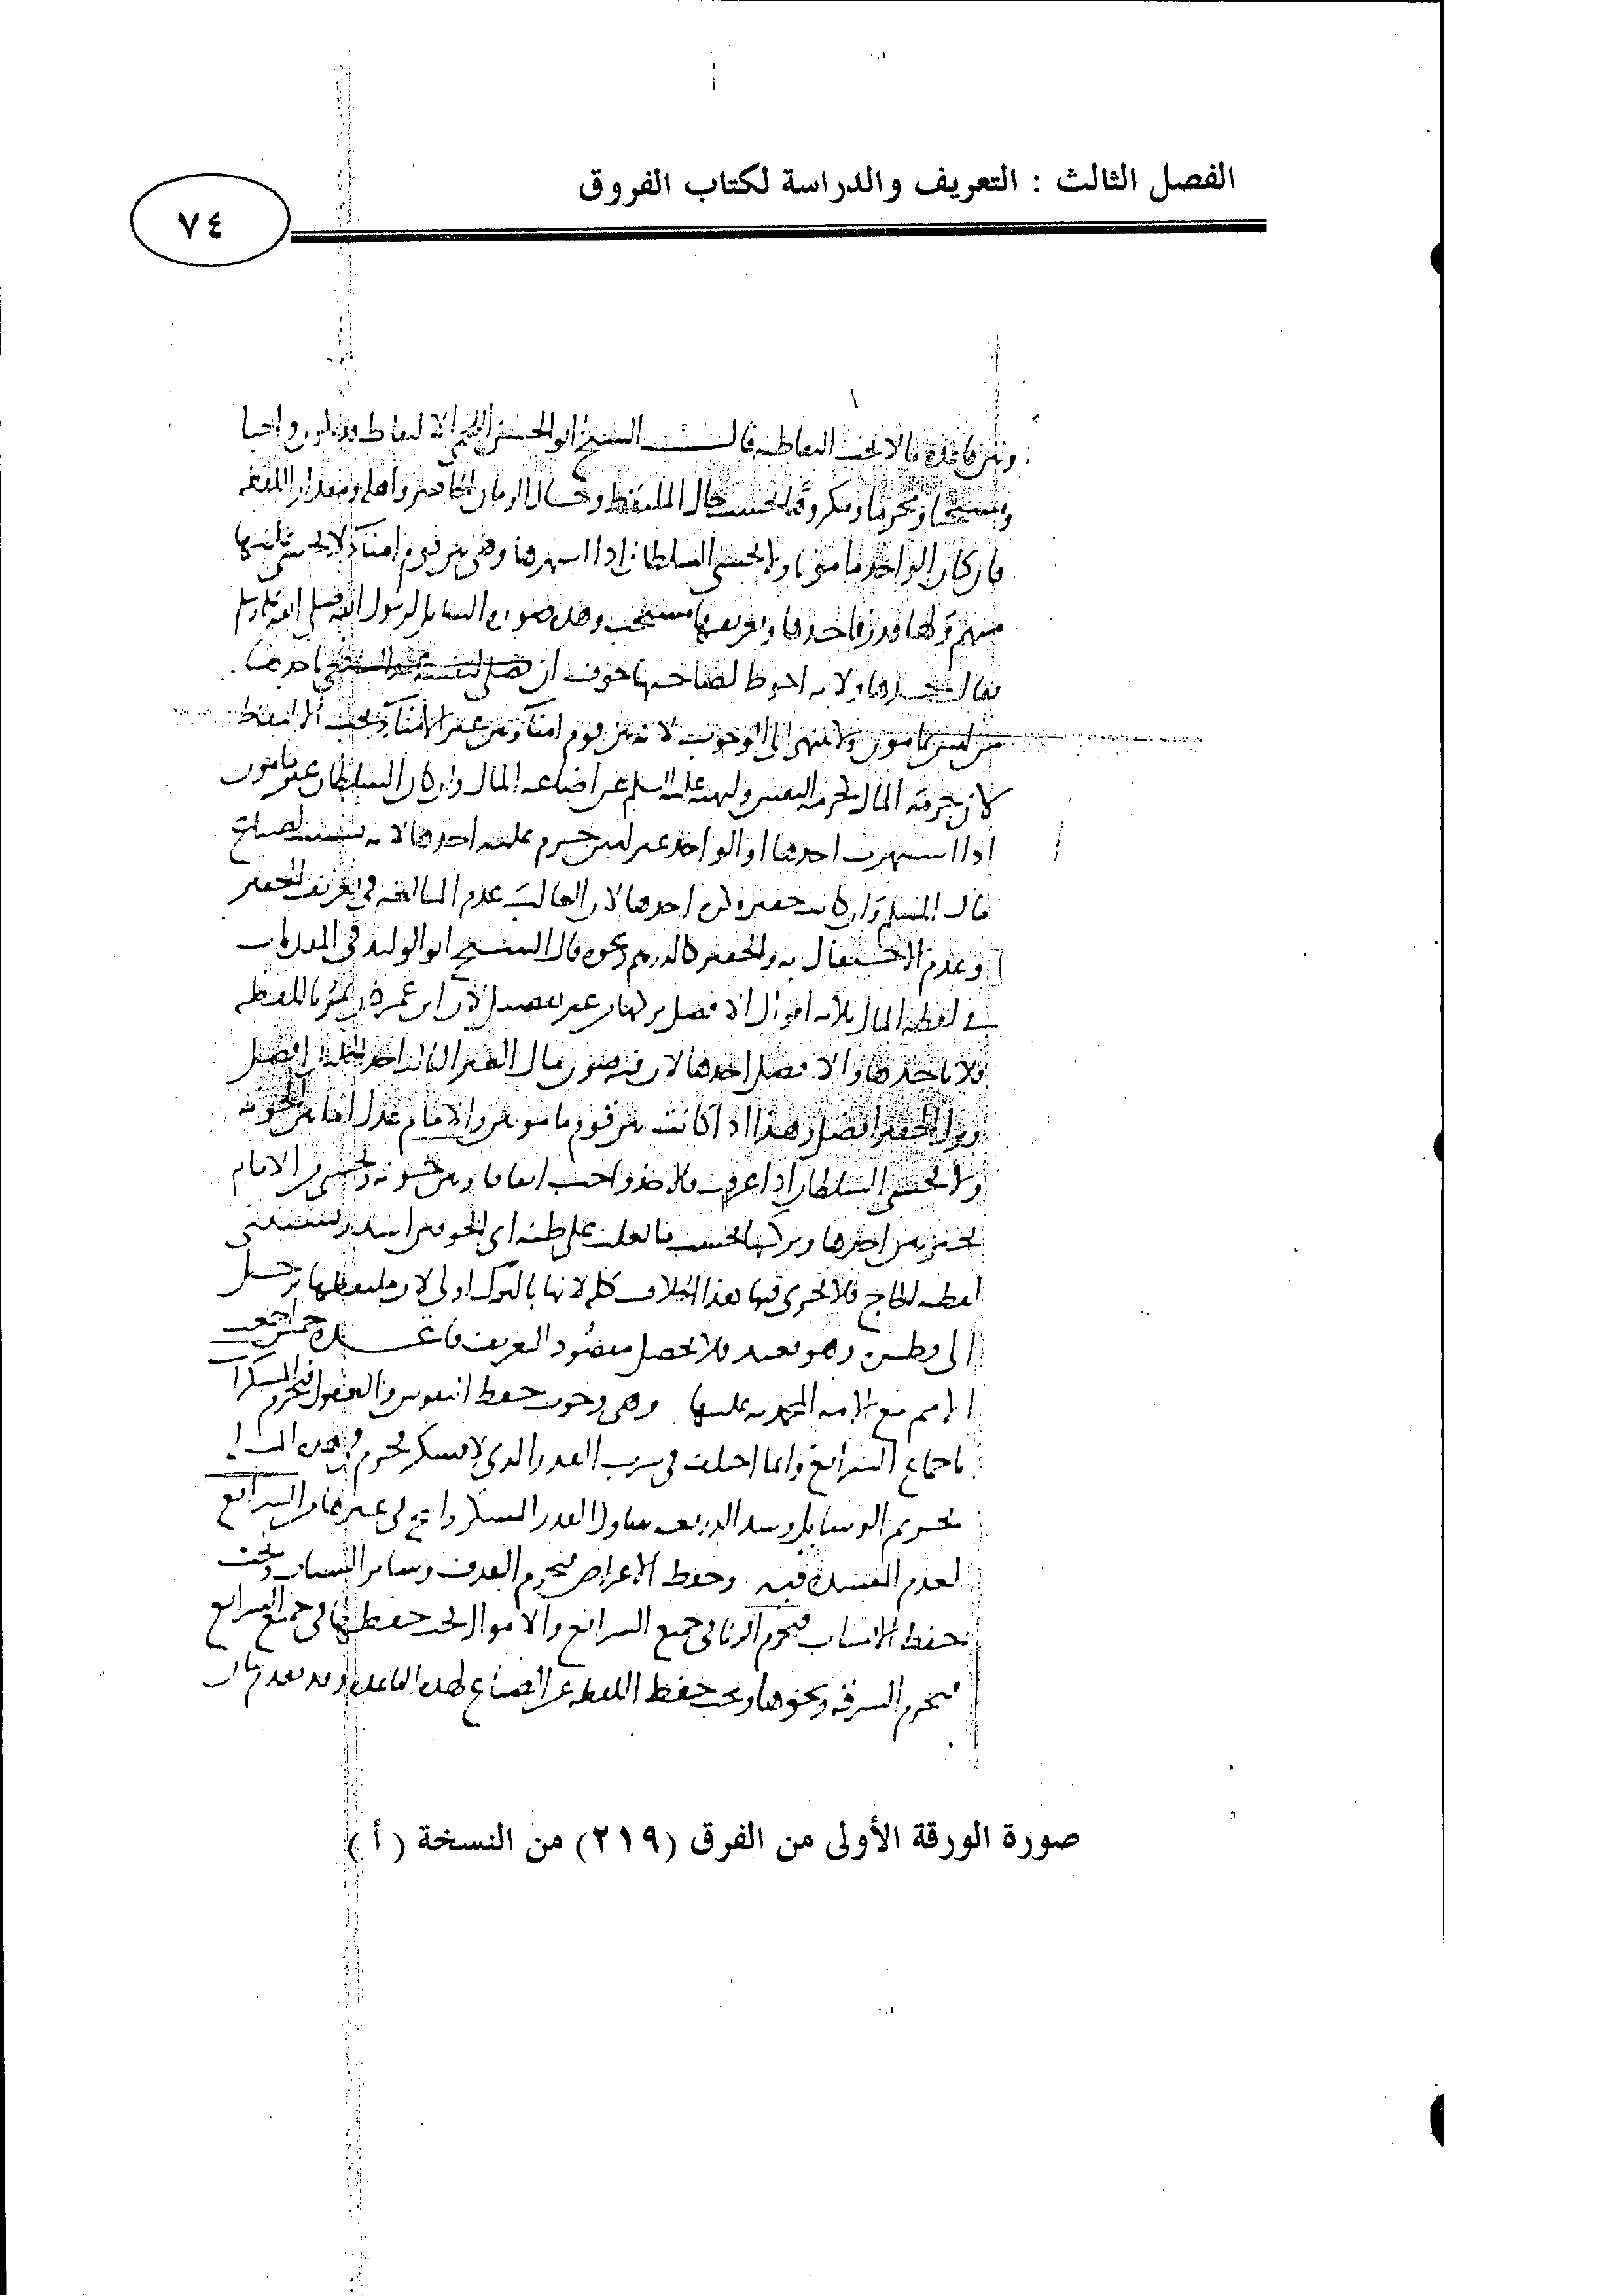 الفصل الثالث : التعريف والدراسة لكتاب الفروق
٧٤
وبين قاعدة ما لا يجب التقاطه قال الشيخ ابو الحسن اللخمي الالتقاط واجبا
ومستحبا ومحرما ومكروها بحسب حال الملتقط وحال الزمان الحاضر واهله ومقدار اللقطه
فان كان الواجد مامونا ولا يخشى السلطان اذا اشهرها وهي بين قوم امنا لا يخشى
منهم ولها قدر فاخذها وتعريفها مستحب وهذه صورة السايل لرسول الله صلى الله عليه وسلم
فقال خذها ولانه احوط لصاحبها خوف ان
من ليس بمامون ولا ينتهي الى الوجوب لانه بين قوم امنا وبين غير الامنا يجب الالتقاط
لان حرمة المال كحرمة النفس ولنهيه عليه السلم عن اضاعه المال وان كان السلطان غير مامون
اذا اشهرت اخذها او الواجد غير امين حرم عليه اخذها لانه لضياع
مال المسلم وان كانت حقيره كره اخذها لان الغالب عدم المبالغه في تعريف الحقير
وعدم الاحتفال به والحقير كالدرهم ونحوه قال الشيخ ابو الوليد في المقدمات
في لقطه المال ثلاثه اقوال الافضل تركها من غير تفصيل لان ابن عمر كان يمر باللقطه
فلا ياخذها والافضل اخذها لان فيه صون مال الغير الثالث اخذ الجليل افضل
وترك الحقير افضل وهذا اذا كانت بين قوم مامونين والامام عدل اما بين الخونه
ولا يخشى السلطان اذا عرفت فالاخذ واجب اتفاقا وبين خونه ويخشى من الامام
يخير بين اخذها وتركها بحسب ما يغلب على ظنه اي الخوفين اشد ويستثنى
لقطه الحاج فلا يجري فيها هذا الخلاف كله لانها بالترك اولى لان ملتقطها يرحل
الى وطنه وهو بعيد فلا يحصل مقصود التعريف قاعدة خمس اجمعت
الامم مع الامه المحمديه عليها وهي وجوب حفظ النفوس والعقول فتحرم المسكرات
باجماع الشرائع وانما اختلف في شرب القدر الذي لا يسكر فحرم في هذه المله
تحريم الوسايل وسد الذريعه بتناول القدر المسكر وابيح في غيرها من الشرائع
لعدم المفسده فيه وحفظ الاعراض فيحرم القذف وسائر السباب ويجب
حفظ الانساب فيحرم الزنا في جميع الشرائع والاموال يجب حفظها في جميع الشرائع
فتحرم السرقه ونحوها ويجب حفظ اللقطه عن الضياع لهذه القاعده وقد تقدم
صورة الورقة الأولى من الفرق (٢١٩) من النسخة (أ)